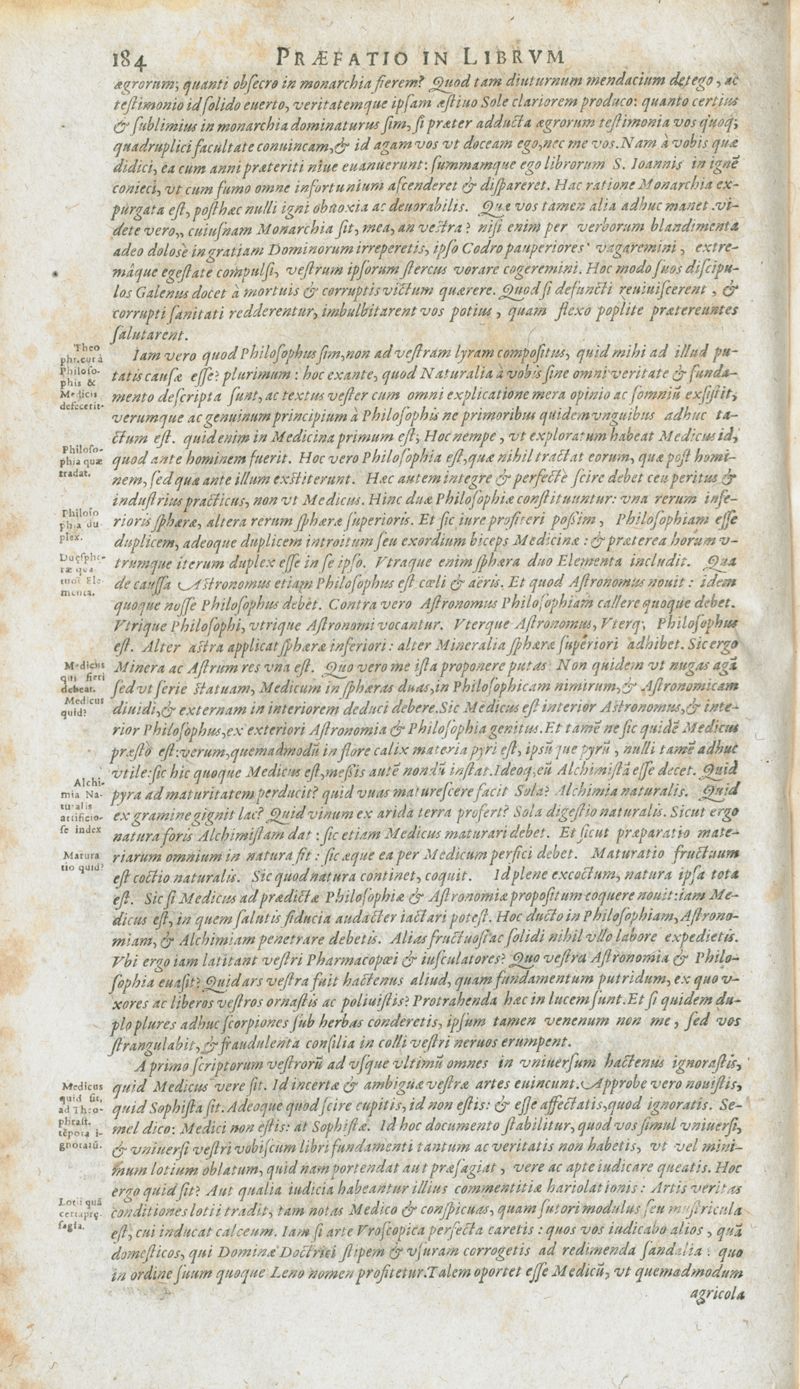 184 PRÆFATIO IN LIBRVM
ægrorum; quanti obſecro in monarchia fierem? Quod tam diuturnum mendacium detego, ac
teſtimonio id ſolido euerto, veritatemque ipſam æſtiuo Sole clariorem produco: quanto certius
& ſublimius in monarchia dominaturus ſim, ſi præter adducta ægrorum teſtimonia vos quoq;
quadruplici facultate conuincam, & id agam vos vt doceam ego, nec me vos. Nam à vobis quæ
didici, ea cum anni præteriti niue euanuerunt: ſummamque ego librorum S. Ioannis in ignē
conieci, vt cum fumo omne infortunium aſcenderet & diſpareret. Hac ratione Monarchia ex-
purgata eſt, poſthac nulli igni obnoxia ac deuorabilis. Quæ vos tamen alia adhuc manet. vi-
dete vero, cuiuſnam Monarchia ſit, mea, an veſtra? niſi enim per verborum blandimenta
adeo dolosè in gratiam Dominorum irreperetis, ipſo Codro pauperiores vagaremini, extre-
máque egeſtate compulſi, veſtrum ipſorum ſtercus vorare cogeremini. Hoc modo ſuos diſcipu-
los Galenus docet à mortuis & corruptis victum quærere. Quod ſi defuncti reuiuiſcerent, &
corrupti ſanitati redderentur, imbulbitarent vos potius, quam flexo poplite prætereuntes
ſalutarent.
Theo
phr. cur à
Philoſo-
phis &
Medicis
defecerit.
Iam vero quod Philoſophus ſim, non ad veſtram lyram compoſitus, quid mihi ad illud pu-
tatis cauſæ eſſe? plurimum: hoc ex ante, quod Naturalia à vobis ſine omni veritate & funda-
mento deſcripta ſunt, ac textus veſter cum omni explicatione mera opinio ac ſomniū exſiſtit,
verumque ac genuinum principium à Philoſophis ne primoribus quidem vnguibus adhuc ta-
ctum eſt. quid enim in Medicina primum eſt; Hoc nempe, vt exploratum habeat Medicus id,
Philoſo-
phia quæ
tradat.
quod ante hominem fuerit. Hoc vero Philoſophia eſt, quæ nihil tractat eorum, quæ poſt homi-
nem, ſed quæ ante illum exstiterunt. Hæc autem integre & perfectè ſcire debet ceu peritus &
induſtrius practicus, non vt Medicus. Hinc duæ Philoſophiæ conſtituuntur: vna rerum infe-
Philoſo
phia du
plex.
rioris ſphæræ, altera rerum ſphæræ ſuperioris. Et ſic iure profiteri poßim, Philoſophiam eſſe
duplicem, adeoque duplicem introitum ſeu exordium biceps Medicinæ: & præterea horum v-
Duæ ſphe-
ræ qua
tuor Ele
menta.
trumque iterum duplex eſſe in ſe ipſo. Vtraque enim ſphæra duo Elementa includit. Qua
de cauſſa Astronomus etiam Philoſophus eſt cœli & aëris. Et quod Aſtronomus nouit: idem
quoque noſſe Philoſophus debet. Contra vero Aſtronomus Philoſophiam callere quoque debet.
Vtrique Philoſophi, vtrique Aſtronomi vocantur. Vterque Aſtronomus, Vterq; Philoſophus
eſt. Alter aſtra applicat ſphæræ inferiori: alter Mineralia ſphæræ ſuperiori adhibet. Sic ergo
Medicus
qui fieri
debeat.
Minera ac Aſtrum res vna eſt. Quo vero me iſta proponere putas Non quidem vt nugas agā
ſed vt ſerie ſtatuam, Medicum in ſphæras duas, in Philoſophicam nimirum, & Aſtronomicam
Medicus
quid?
diuidi, & externam in interiorem deduci debere. Sic Medicus eſt interior Aſtronomus, & inte-
rior Philoſophus, ex exteriori Aſtronomia & Philoſophia genitus. Et tamē ne ſic quidē Medicus
præſto eſt: verum, quemadmodū in flore calix materia pyri eſt, ipſūque pyrū, nulli tamē adhuc
vtile: ſic hic quoque Medicus eſt, meßis autē nondū inſtat. Ideoq; eū Alchimiſtā eſſe decet. Quid
Alchi-
mia Na-
turalis
artificio-
ſe index
pyra ad maturitatem perducit? quid vuas matureſcere facit Sola? Alchimia naturalis. Quid
ex gramine gignit lac? Quid vinum ex arida terra profert? Sola digeſtio naturalis. Sicut ergo
natura foris Alchimiſtam dat: ſic etiam Medicus maturari debet. Et ſicut præparatio mate-
Matura
tio quid?
riarum omnium in natura fit: ſic æque ea per Medicum perfici debet. Maturatio fructuum
eſt coctio naturalis. Sic quod natura continet, coquit. Id plene excoctum, natura ipſa tota
eſt. Sic ſi Medicus ad prædictæ Philoſophiæ & Aſtronomiæ propoſitum coquere nouit: iam Me-
dicus eſt, in quem ſalutis fiducia audacter iactari poteſt. Hoc ducto in Philoſophiam, Aſtrono-
miam, & Alchimiam penetrare debetis. Alias fructuoſi ac ſolidi nihil vllo labore expedietis.
Vbi ergo iam latitant veſtri Pharmacopæi & iuſculatores? Quo veſtra Aſtronomia & Philo-
ſophia euaſit? Quid ars veſtra fuit hactenus aliud, quam fundamentum putridum, ex quo v-
xores ac liberos veſtros ornaſtis ac poliuiſtis? Protrahenda hæc in lucem ſunt. Et ſi quidem du-
plo plures adhuc ſcorpiones ſub herbas conderetis, ipſum tamen venenum non me, ſed vos
ſtrangulabit, & fraudulenta conſilia in colli veſtri neruos erumpent.
A primo ſcriptorum veſtrorū ad vſque vltimū omnes in vniuerſum hactenus ignoraſtis,
Medicus
quid ſit,
ad Theo-
phraſt.
tēpora i-
gnoratū.
quid Medicus vere ſit. Id incertæ & ambiguæ veſtræ artes euincunt. Approbe vero nouiſtis,
quid Sophiſta ſit. Adeoque quod ſcire cupitis, id non eſtis: & eſſe affectatis, quod ignoratis. Se-
mel dico: Medici non eſtis: at Sophiſtæ. Id hoc documento ſtabilitur, quod vos ſimul vniuerſi,
& vniuerſi veſtri vobiſcum libri fundamenti tantum ac veritatis non habetis, vt vel mini-
mum lotium oblatum, quid nam portendat aut præſagiat, vere ac apte iudicare queatis. Hoc
ergo quid ſit? Aut qualia iudicia habeantur illius commentitiæ hariolationis: Artis veritas
Lotii quā
certa prę-
ſagia.
conditiones lotii tradit, tam notas Medico & conſpicuas, quam ſutori modulus ſeu muſtricula
eſt, cui inducat calceum. Iam ſi arte Vroſcopica perfecta caretis: quos vos iudicabo alios, quā
domeſticos, qui Dominæ Doctrici ſtipem & vſuram corrogetis ad redimenda ſandalia: quo
in ordine ſuum quoque Leno nomen profitetur. Talem oportet eſſe Medicū, vt quemadmodum
agricola